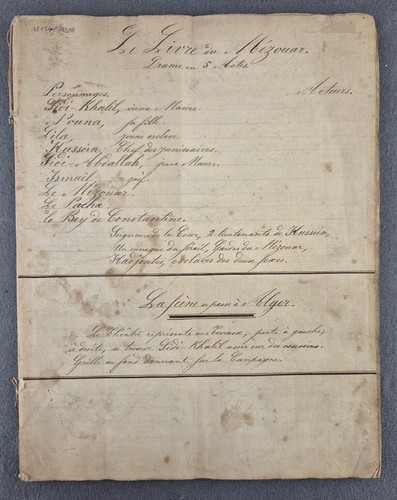 Le Livre du Mézouar.
Drame en 5 Actes.
Personnages. Acteurs.
Sidi-Khalil, vieux Maure.
Nouna, sa fille.
Lila, jeune esclave.
Hussein, Chef des janissaires.
Sidi-Abdallah, jeune Maure.
Ismaël, juif.
Le Mézouar.
Le Pacha.
Le Bey de Constantine.
Seigneurs de la Cour, 2 lieutenants de Hussein,
Un eunuque du sérail, Gardes du Mézouar,
esclaves des deux sexes.
La scène se passe à Alger.
Le Théâtre représente une Terrasse, porte à gauche;
à droite, se trouve Sidi-Khalil assis sur des coussins.
Grille au fond donnant sur la Campagne.